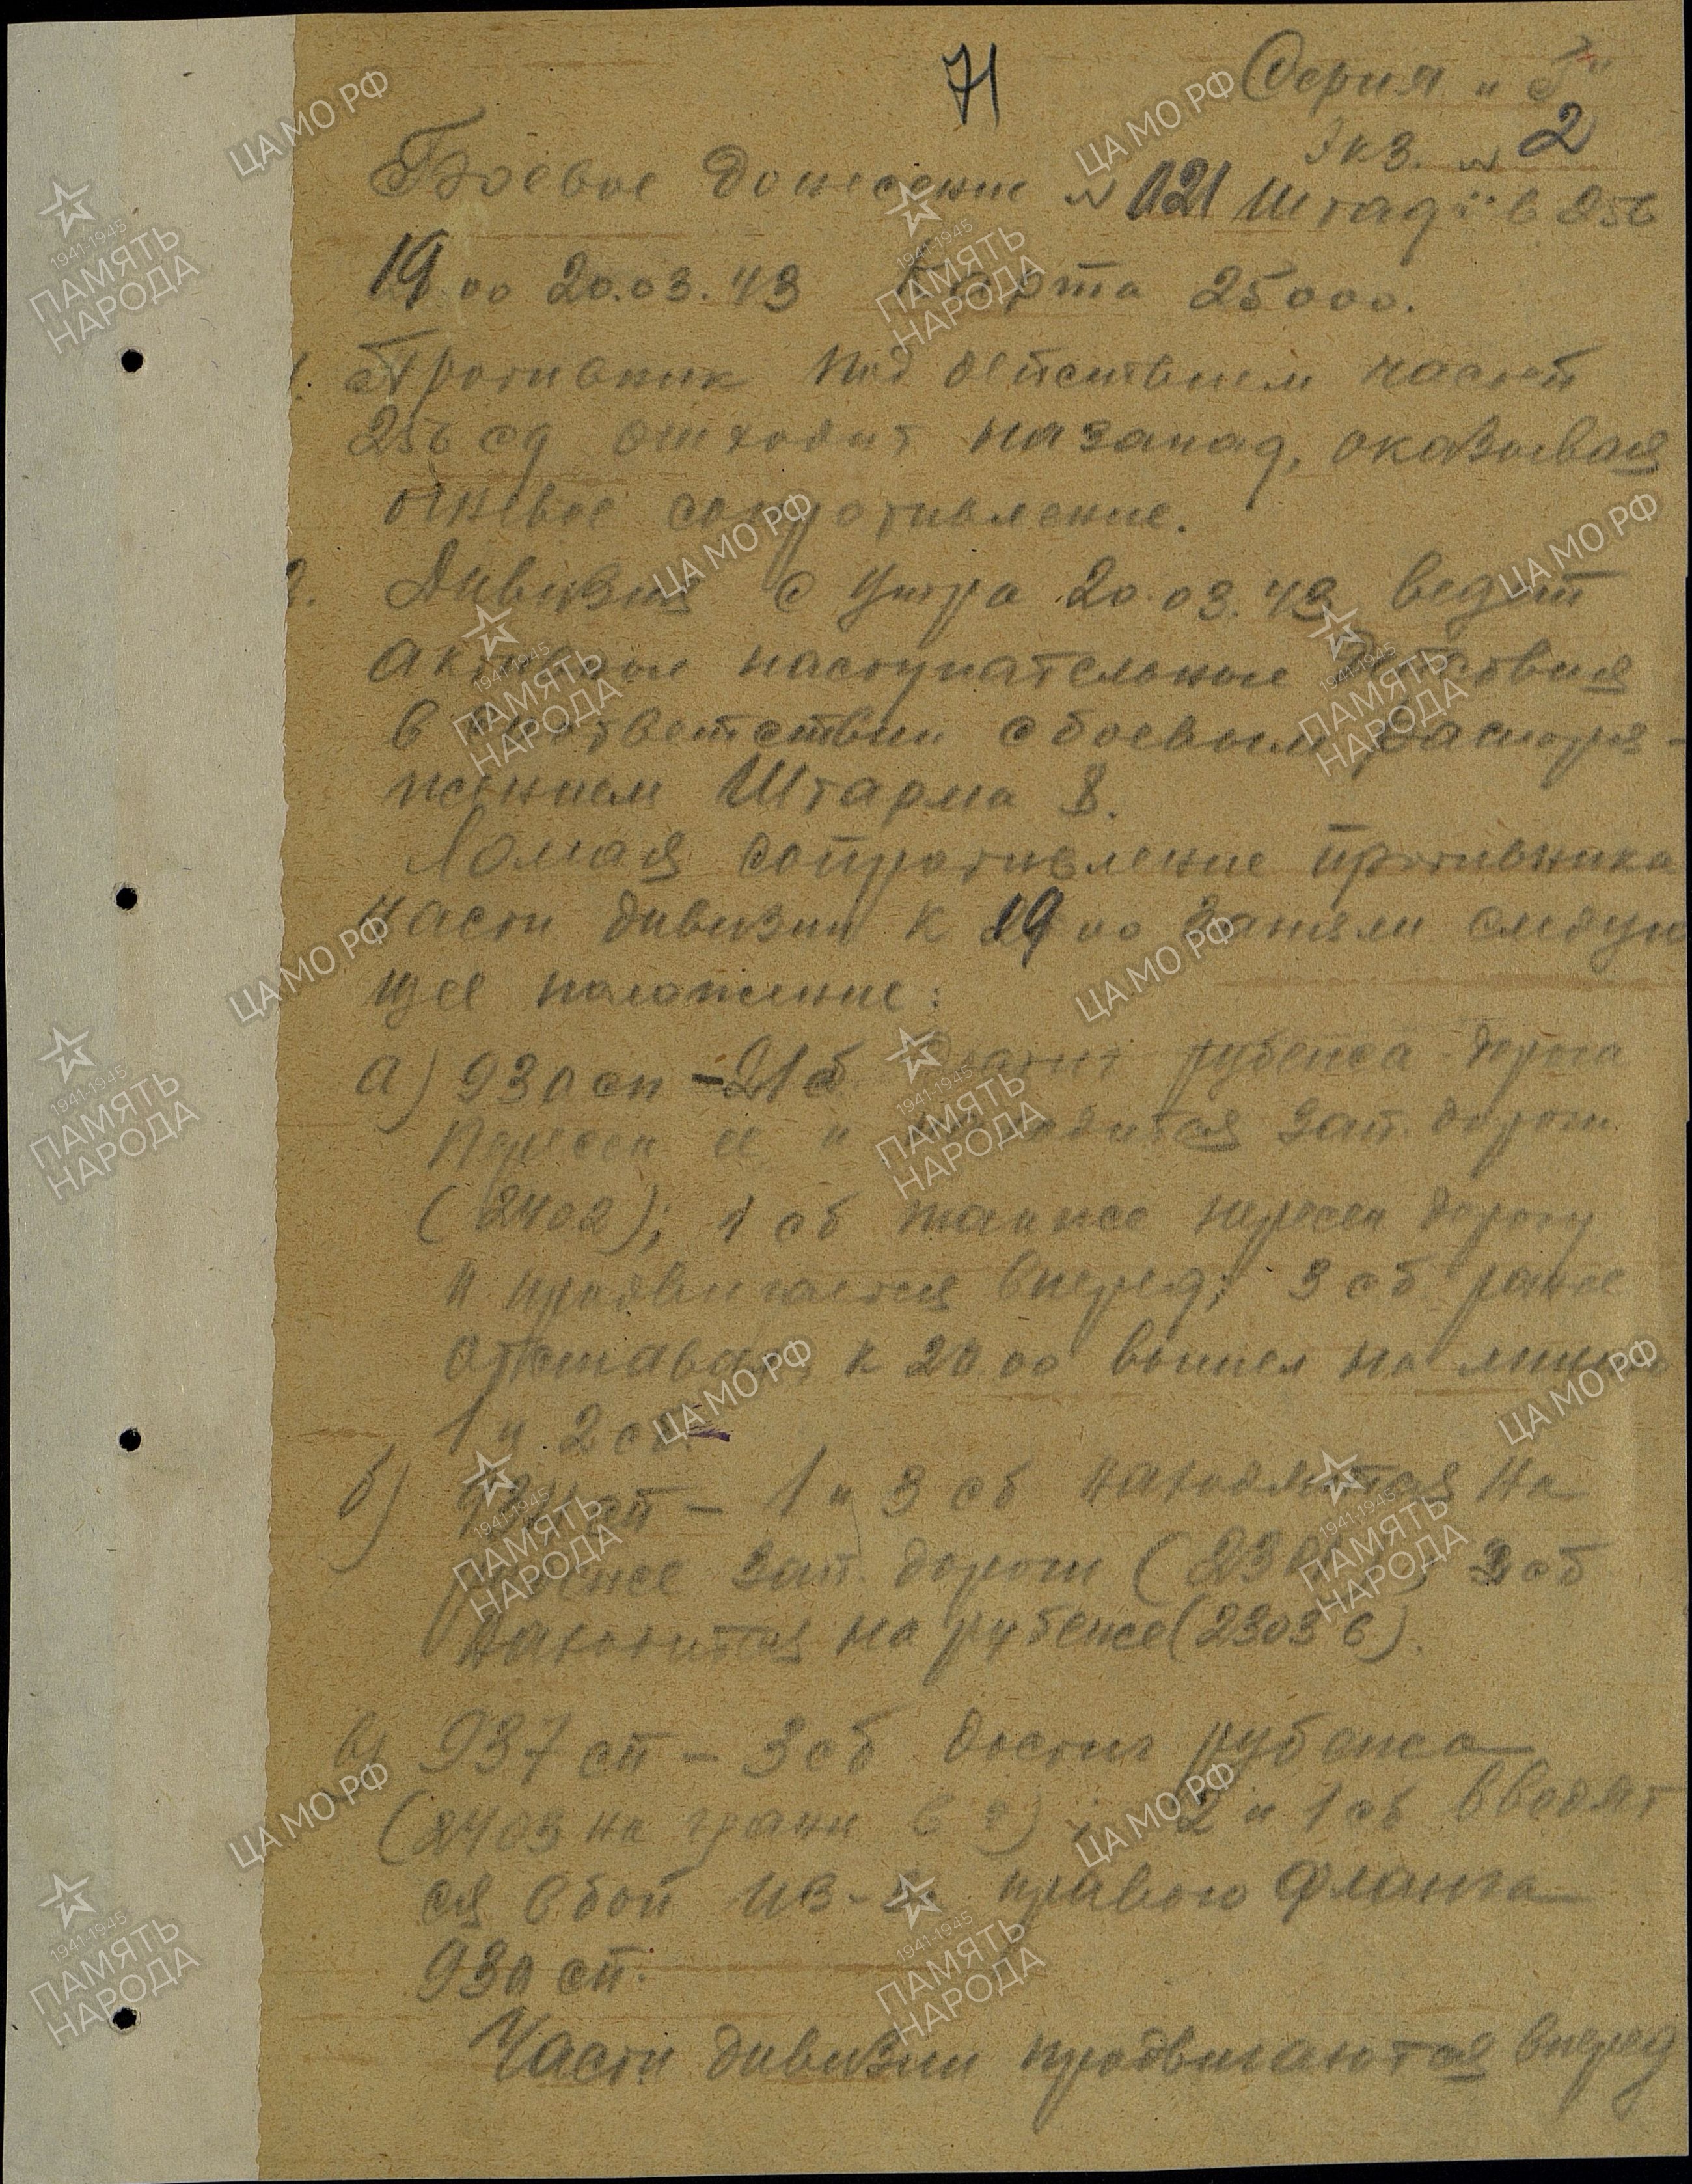 71
Серия "Г"
Экз. № 2
Боевое донесение № 021 Штадив 256
19.00 20.03.43 Карта 25000.
1. Противник под действием частей
256 сд отходит на запад, оказывая
огневое сопротивление.
2. Дивизия с утра 20.03.43 ведет
активные наступательные действия
в соответствии с боевым распоря-
жением Штарма 8.
Ломая сопротивление противника
части дивизии к 19.00 заняли следую
щее положение:
а) 930 сп - 2 сб достиг рубежа дорога
пересек ее и находится зап. дороги
(2402); 1 сб также пересек дорогу
и продвигается вперед; 3 сб ранее
отставал, к 20.00 вышел на линию
1 и 2 сб.
б) 934 сп - 1 и 3 сб находятся на
рубеже зап. дороги ( 2 сб
находится на рубеже (2303 в).
в) 937 сп - 3 сб достиг рубежа
(2403 на грани в г); 2 и 1 сб вводят
ся в бой из-за правого фланга
930 сп.
Части дивизии продвигаются вперед
ЦА МО РФ
1941-1945
ПАМЯТЬ
НАРОДА